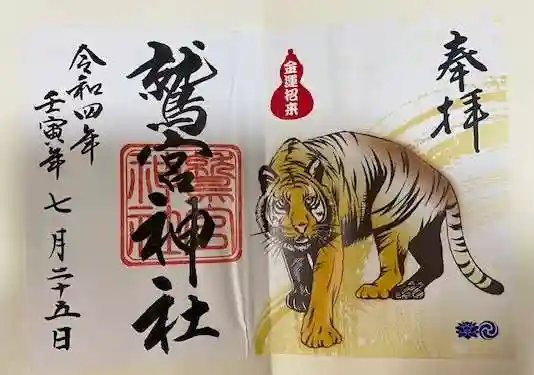 奉拝
金運招来
鷲宮神社
令和四年
壬寅年
七月二十五日